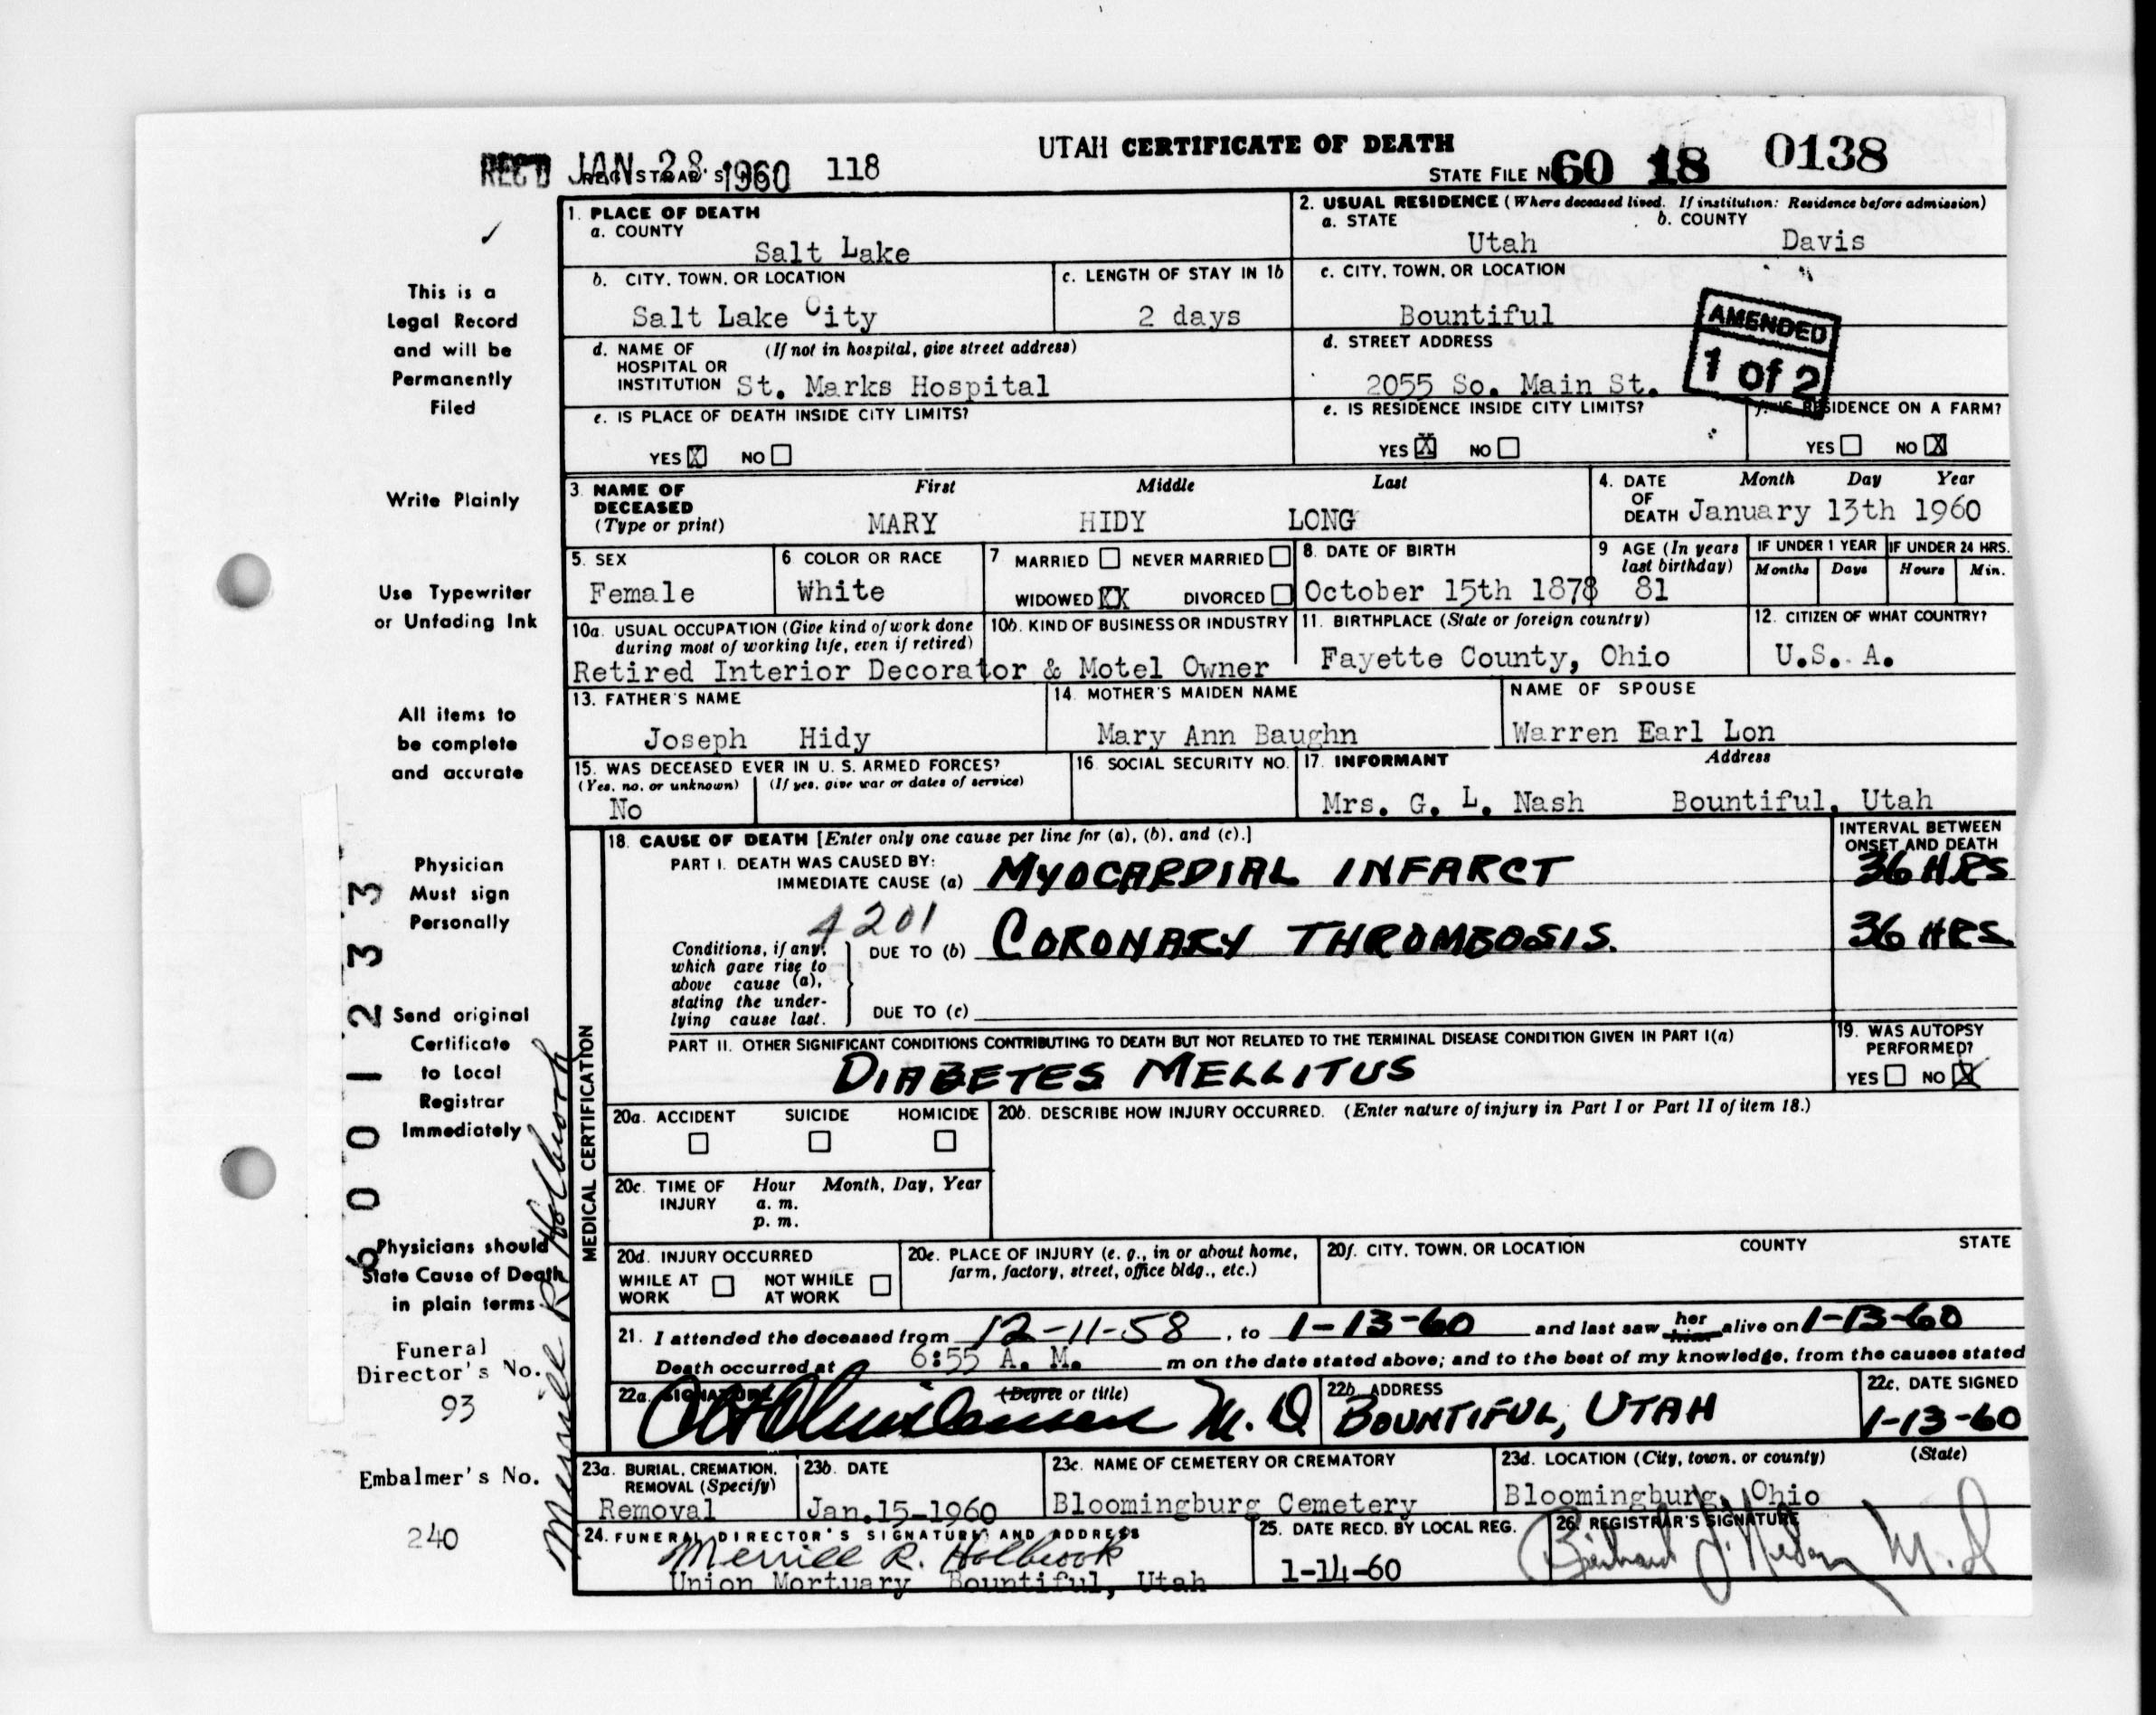 UTAH CERTIFICATE OF DEATH
REC'D JAN 28 1960 118
STATE FILE NO 60 18 0138
1. PLACE OF DEATH
a. COUNTY
Salt Lake
2. USUAL RESIDENCE (Where deceased lived. If institution: Residence before admission)
a. STATE b. COUNTY
Utah Davis
b. CITY, TOWN, OR LOCATION c. LENGTH OF STAY IN 1b
Salt Lake City 2 days
c. CITY, TOWN, OR LOCATION
Bountiful
AMENDED
1 of 2
d. NAME OF HOSPITAL OR INSTITUTION (If not in hospital, give street address)
St. Marks Hospital
d. STREET ADDRESS
2055 So. Main St.
e. IS PLACE OF DEATH INSIDE CITY LIMITS?
YES X NO
e. IS RESIDENCE INSIDE CITY LIMITS?
YES X NO
f. IS RESIDENCE ON A FARM?
YES NO X
3. NAME OF DECEASED (Type or print) First Middle Last
MARY HIDY LONG
4. DATE OF DEATH Month Day Year
January 13th 1960
5. SEX
Female
6 COLOR OR RACE
White
7 MARRIED NEVER MARRIED
WIDOWED XX DIVORCED
8. DATE OF BIRTH
October 15th 1878
9 AGE (In years last birthday)
81
IF UNDER 1 YEAR IF UNDER 24 HRS.
Months Days Hours Min.
10a. USUAL OCCUPATION (Give kind of work done during most of working life, even if retired)
10b. KIND OF BUSINESS OR INDUSTRY
Retired Interior Decorator & Motel Owner
11. BIRTHPLACE (State or foreign country)
Fayette County, Ohio
12. CITIZEN OF WHAT COUNTRY?
U.S. A.
13. FATHER'S NAME
Joseph Hidy
14. MOTHER'S MAIDEN NAME
Mary Ann Baughn
NAME OF SPOUSE
Warren Earl Lon
15. WAS DECEASED EVER IN U. S. ARMED FORCES?
(Yes, no, or unknown) (If yes, give war or dates of service)
No
16. SOCIAL SECURITY NO.
17. INFORMANT Address
Mrs. G. L. Nash Bountiful, Utah
MEDICAL CERTIFICATION
18. CAUSE OF DEATH [Enter only one cause per line for (a), (b), and (c).]
INTERVAL BETWEEN ONSET AND DEATH
PART I. DEATH WAS CAUSED BY:
IMMEDIATE CAUSE (a) MYOCARDIAL INFARCT 36 HRS
4201
Conditions, if any, which gave rise to above cause (a), stating the underlying cause last.
DUE TO (b) CORONARY THROMBOSIS. 36 HRS
DUE TO (c)
PART II. OTHER SIGNIFICANT CONDITIONS CONTRIBUTING TO DEATH BUT NOT RELATED TO THE TERMINAL DISEASE CONDITION GIVEN IN PART I(a)
DIABETES MELLITUS
19. WAS AUTOPSY PERFORMED?
YES NO X
20a. ACCIDENT SUICIDE HOMICIDE
20b. DESCRIBE HOW INJURY OCCURRED. (Enter nature of injury in Part I or Part II of item 18.)
20c. TIME OF INJURY Hour Month, Day, Year
a. m.
p. m.
20d. INJURY OCCURRED
WHILE AT WORK NOT WHILE AT WORK
20e. PLACE OF INJURY (e. g., in or about home, farm, factory, street, office bldg., etc.)
20f. CITY, TOWN, OR LOCATION COUNTY STATE
21. I attended the deceased from 12-11-58, to 1-13-60 and last saw her him alive on 1-13-60
Death occurred at 6:55 A. M. m on the date stated above; and to the best of my knowledge, from the causes stated
22a. SIGNATURE (Degree or title)
M. D
22b. ADDRESS
BOUNTIFUL, UTAH
22c. DATE SIGNED
1-13-60
23a. BURIAL, CREMATION, REMOVAL (Specify)
Removal
23b. DATE
Jan.15-1960
23c. NAME OF CEMETERY OR CREMATORY
Bloomingburg Cemetery
23d. LOCATION (City, town, or county) (State)
Bloomingburg, Ohio
24. FUNERAL DIRECTOR'S SIGNATURE AND ADDRESS
Merrill R. Holbrook
Union Mortuary Bountiful, Utah
25. DATE RECD. BY LOCAL REG.
1-14-60
26. REGISTRAR'S SIGNATURE
M.D
This is a
Legal Record
and will be
Permanently
Filed
Write Plainly
Use Typewriter
or Unfading Ink
All items to
be complete
and accurate
Physician
Must sign
Personally
Send original
Certificate
to Local
Registrar
Immediately
Physicians should
State Cause of Death
in plain terms
Funeral
Director's No.
93
Embalmer's No.
240
6001233
Merrill R Holbrook